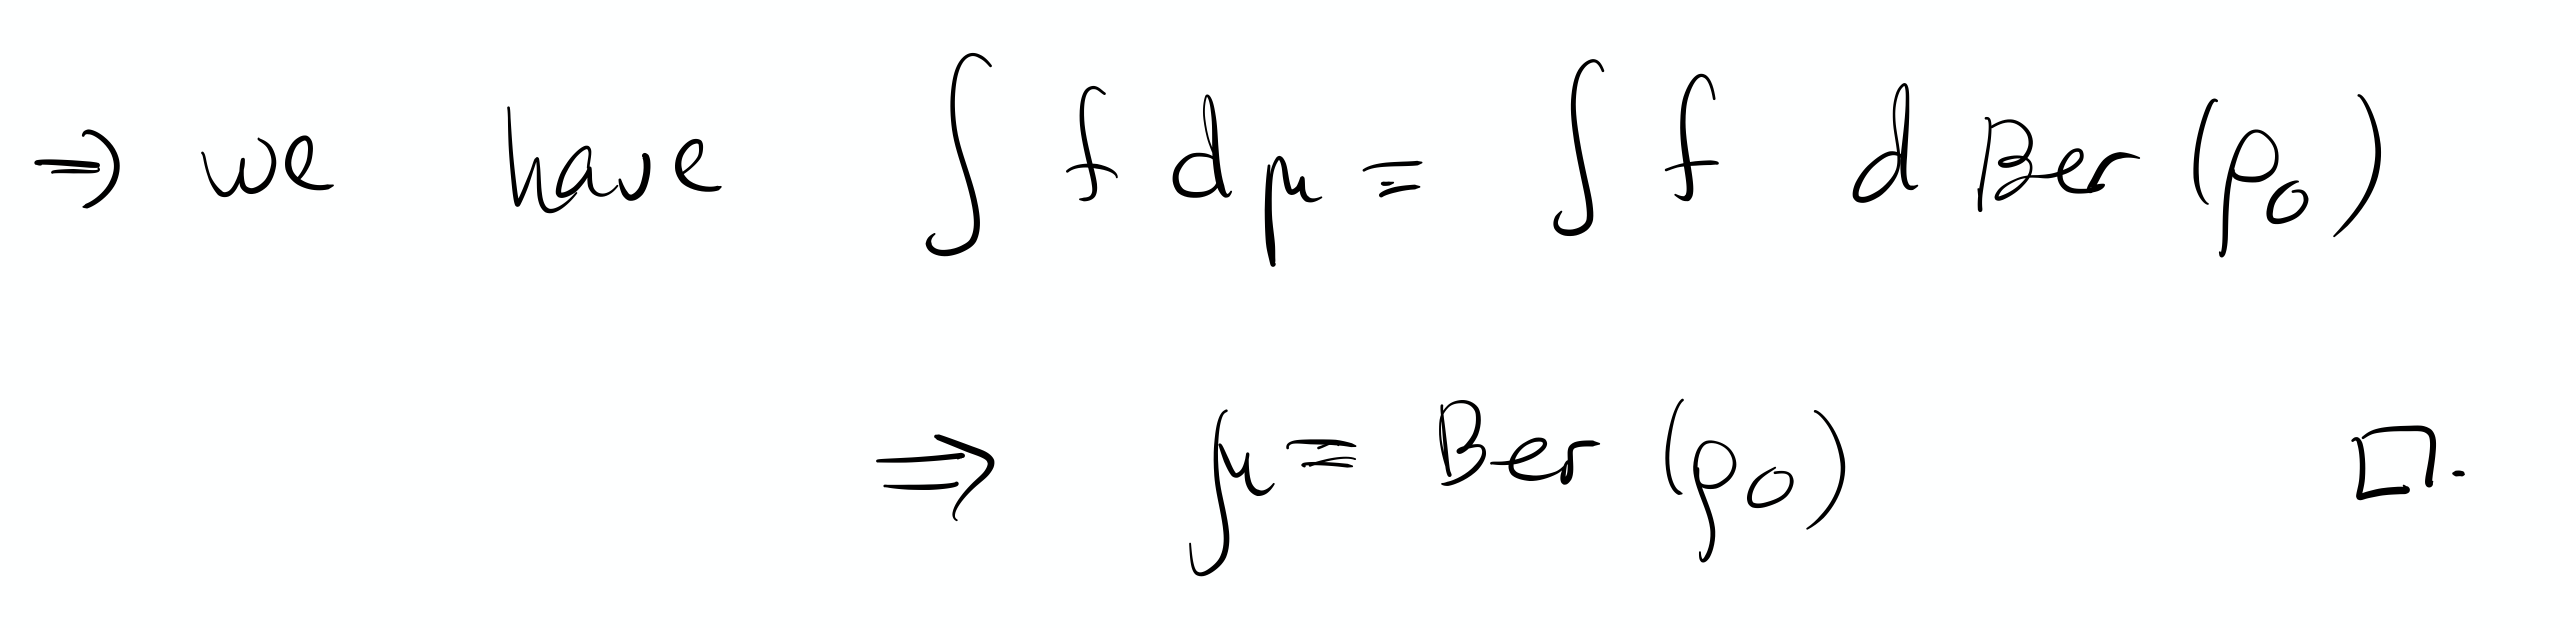 ⇒ we have ∫ f dμ = ∫ f d Ber(ρ₀)
⇒ μ = Ber(ρ₀) □.